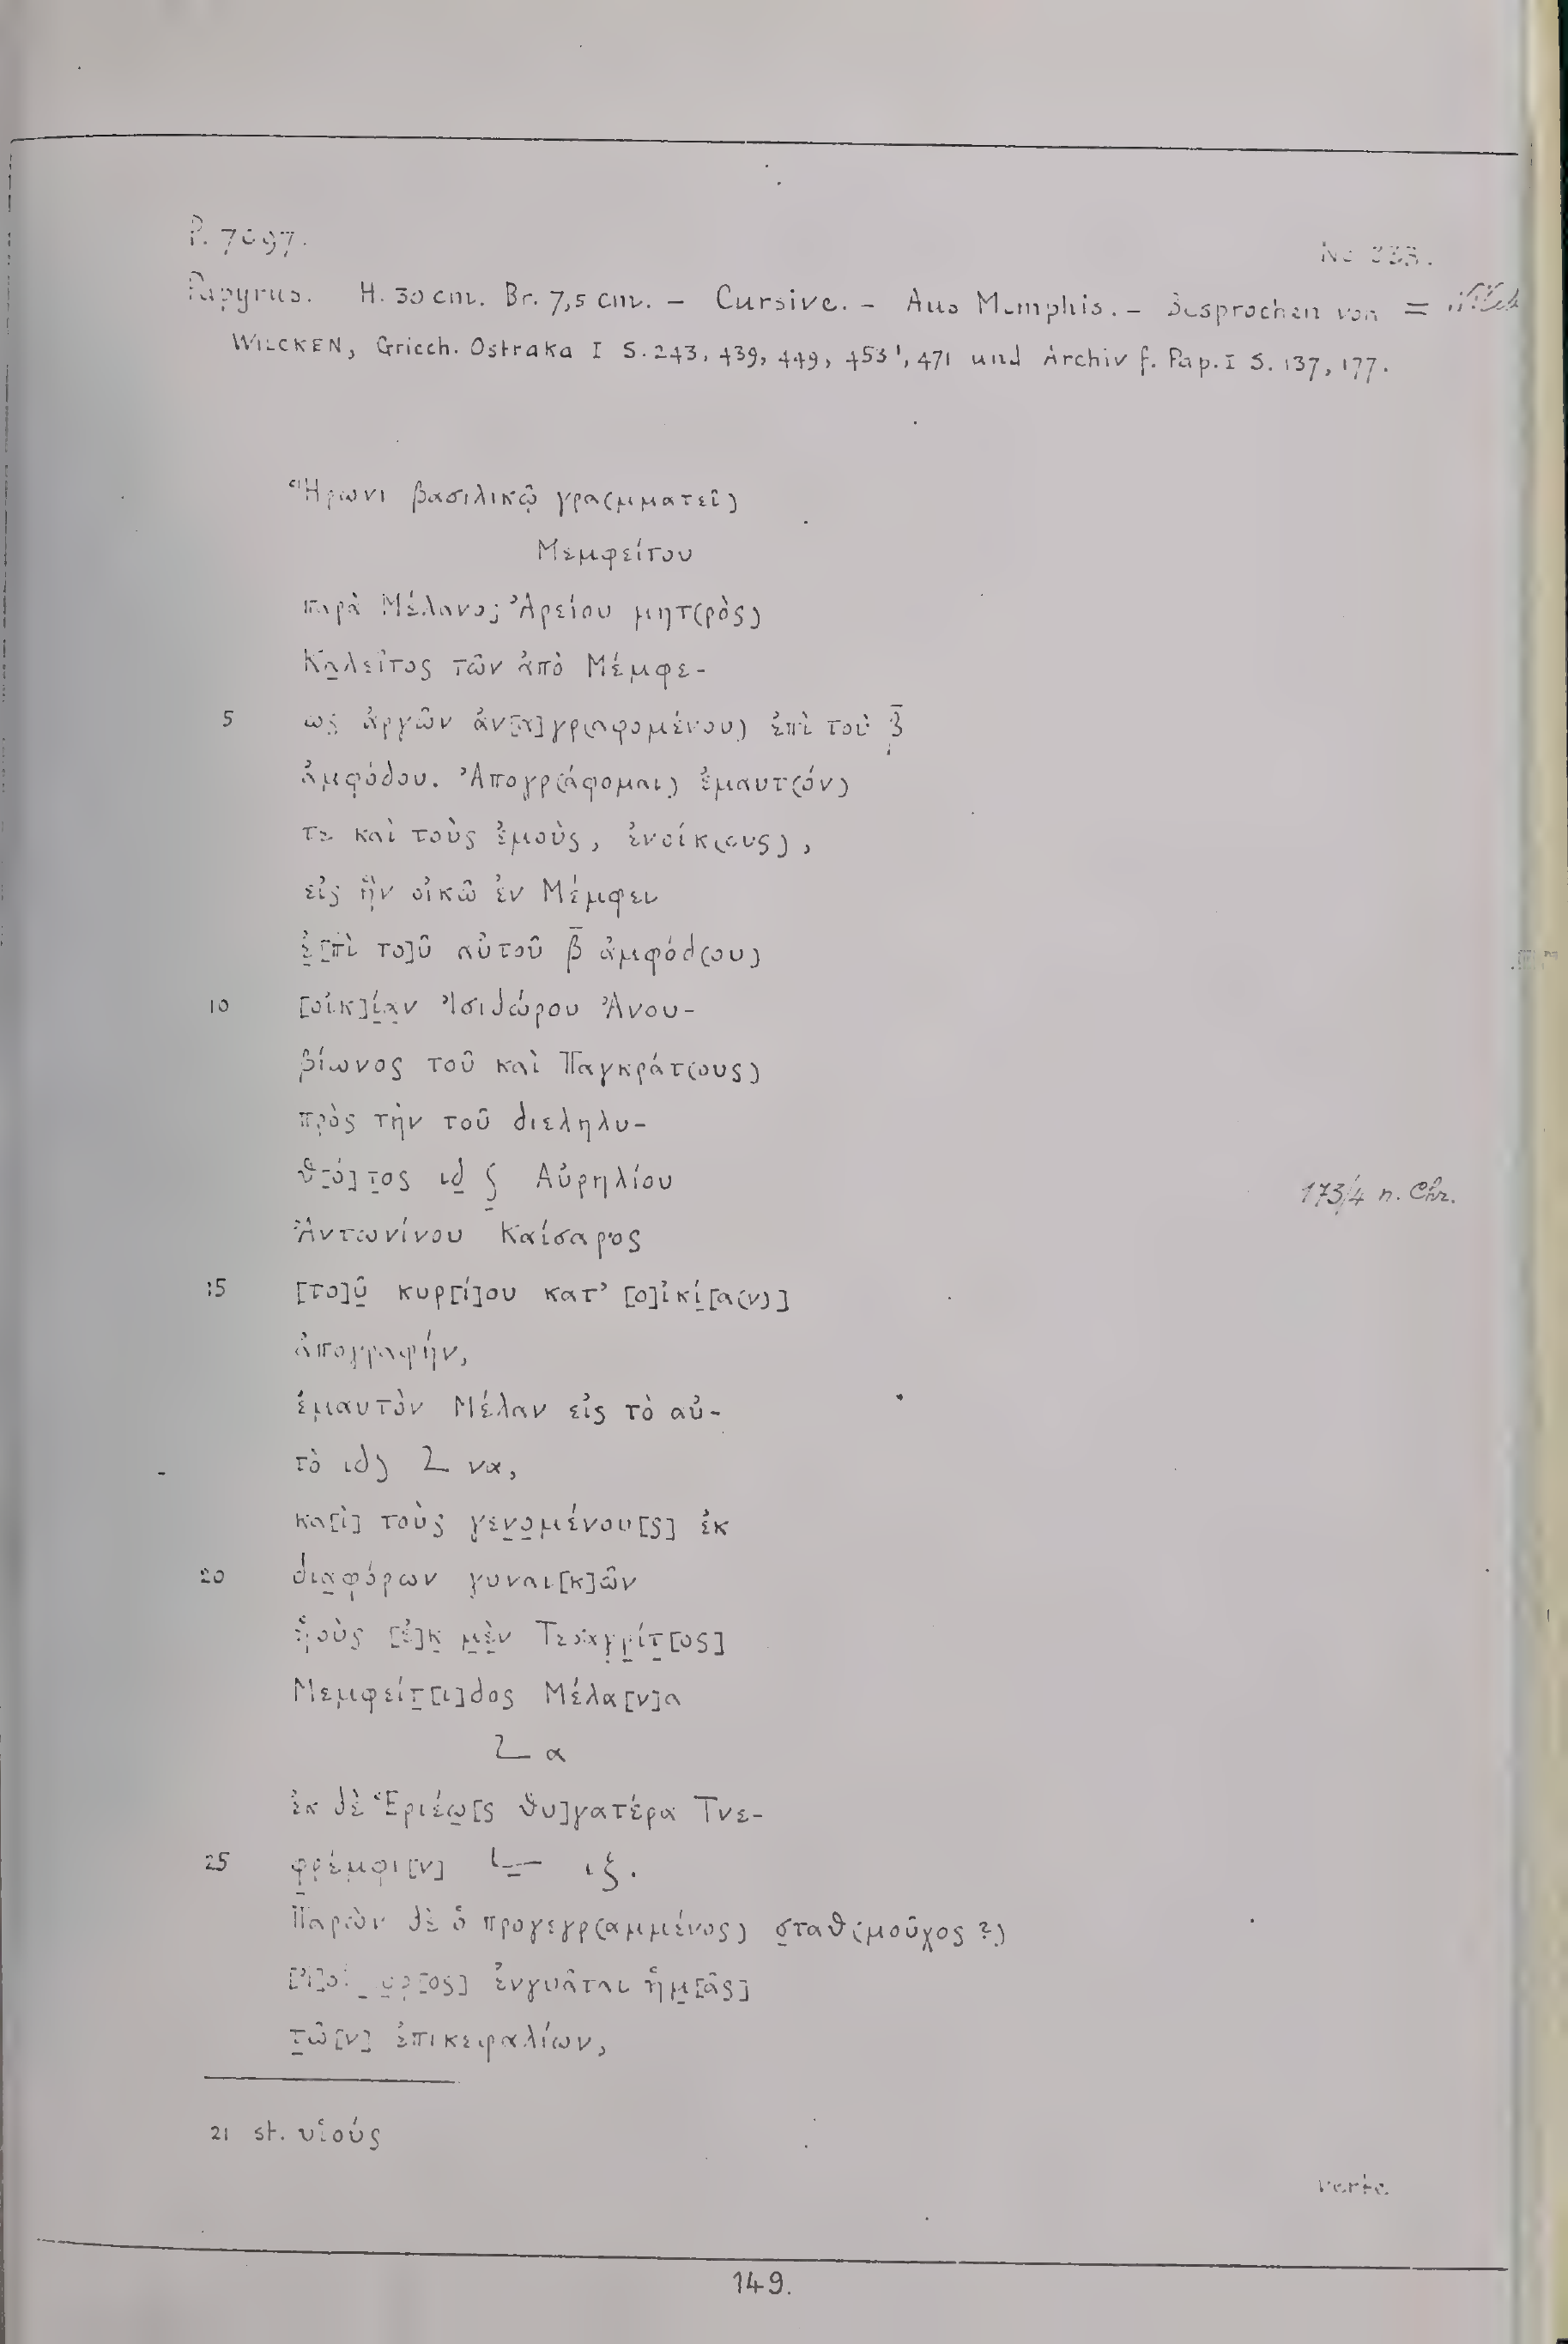 P. 7097.
No 833.
Papyrus. H. 30 cm. Br. 7,5 cm. – Cursive. – Aus Memphis. – Besprochen von =
WILCKEN, Griech. Ostraka I S. 243, 439, 449, 453¹, 471 und Archiv f. Pap. I S. 137, 177.
Ἥρωνι βασιλικῷ γρα(μματεῖ)
Μεμφείτου
παρὰ Μέλανος Ἀρείου μητ(ρὸς)
Κα̣λεῖτος τῶν ἀπὸ Μέμφε-
5 ως ἀργῶν ἀν[α]γρ(αφομένου) ἐπὶ τοῦ β̅
ἀμφόδου. Ἀπογρ(άφομαι) ἐμαυτ(όν)
τε καὶ τοὺς ἐμοὺς, ἐνοίκ(ους),
εἰς ἣν οἰκῶ ἐν Μέμφει
ἐ̣[πὶ το]ῦ αὐτοῦ β̅ ἀμφόδ(ου)
10 [οἰκ]ί̣α̣ν Ἰσιδώρου Ἀνου-
βίωνος τοῦ καὶ Παγκράτ(ους)
πρὸς τὴν τοῦ διεληλυ-
θ[ό]τ̣ος ιδ̣ ϛ̣ Αὐρηλίου
173/4 n. Chr.
Ἀντωνίνου Καίσαρος
15 [το]ῦ̣ κυρ[ί]ου κατ’ [ο]ἰκί̣[α(ν)]
ἀπογραφήν,
ἐμαυτὸν Μέλαν εἰς τὸ αὐ-
τὸ ιδϛ L να,
κα[ὶ] τοὺς γεν̣ο̣μένου[ς] ἐκ
20 δια̣φόρων γυναι[κ]ῶν
ἡοὺς [ἐ]κ̣ μ̣ὲ̣ν
Μεμφείτ̣[ι]δος Μέλα[ν]α
L α
ἐκ δὲ Ἑριέω̣[ς θυ]γατέρα Τνε-
25 φρέμφι[ν] L ιζ.
Παρὼν δὲ ὁ προγεγρ(αμμένος) σ̣ταθ(μοῦχος ?)
ἐνγυᾶται ἡμ̣[ᾶς]
τ̣ῶ[ν] ἐπικεφαλίων,
21 st. υἱούς
verte
149.